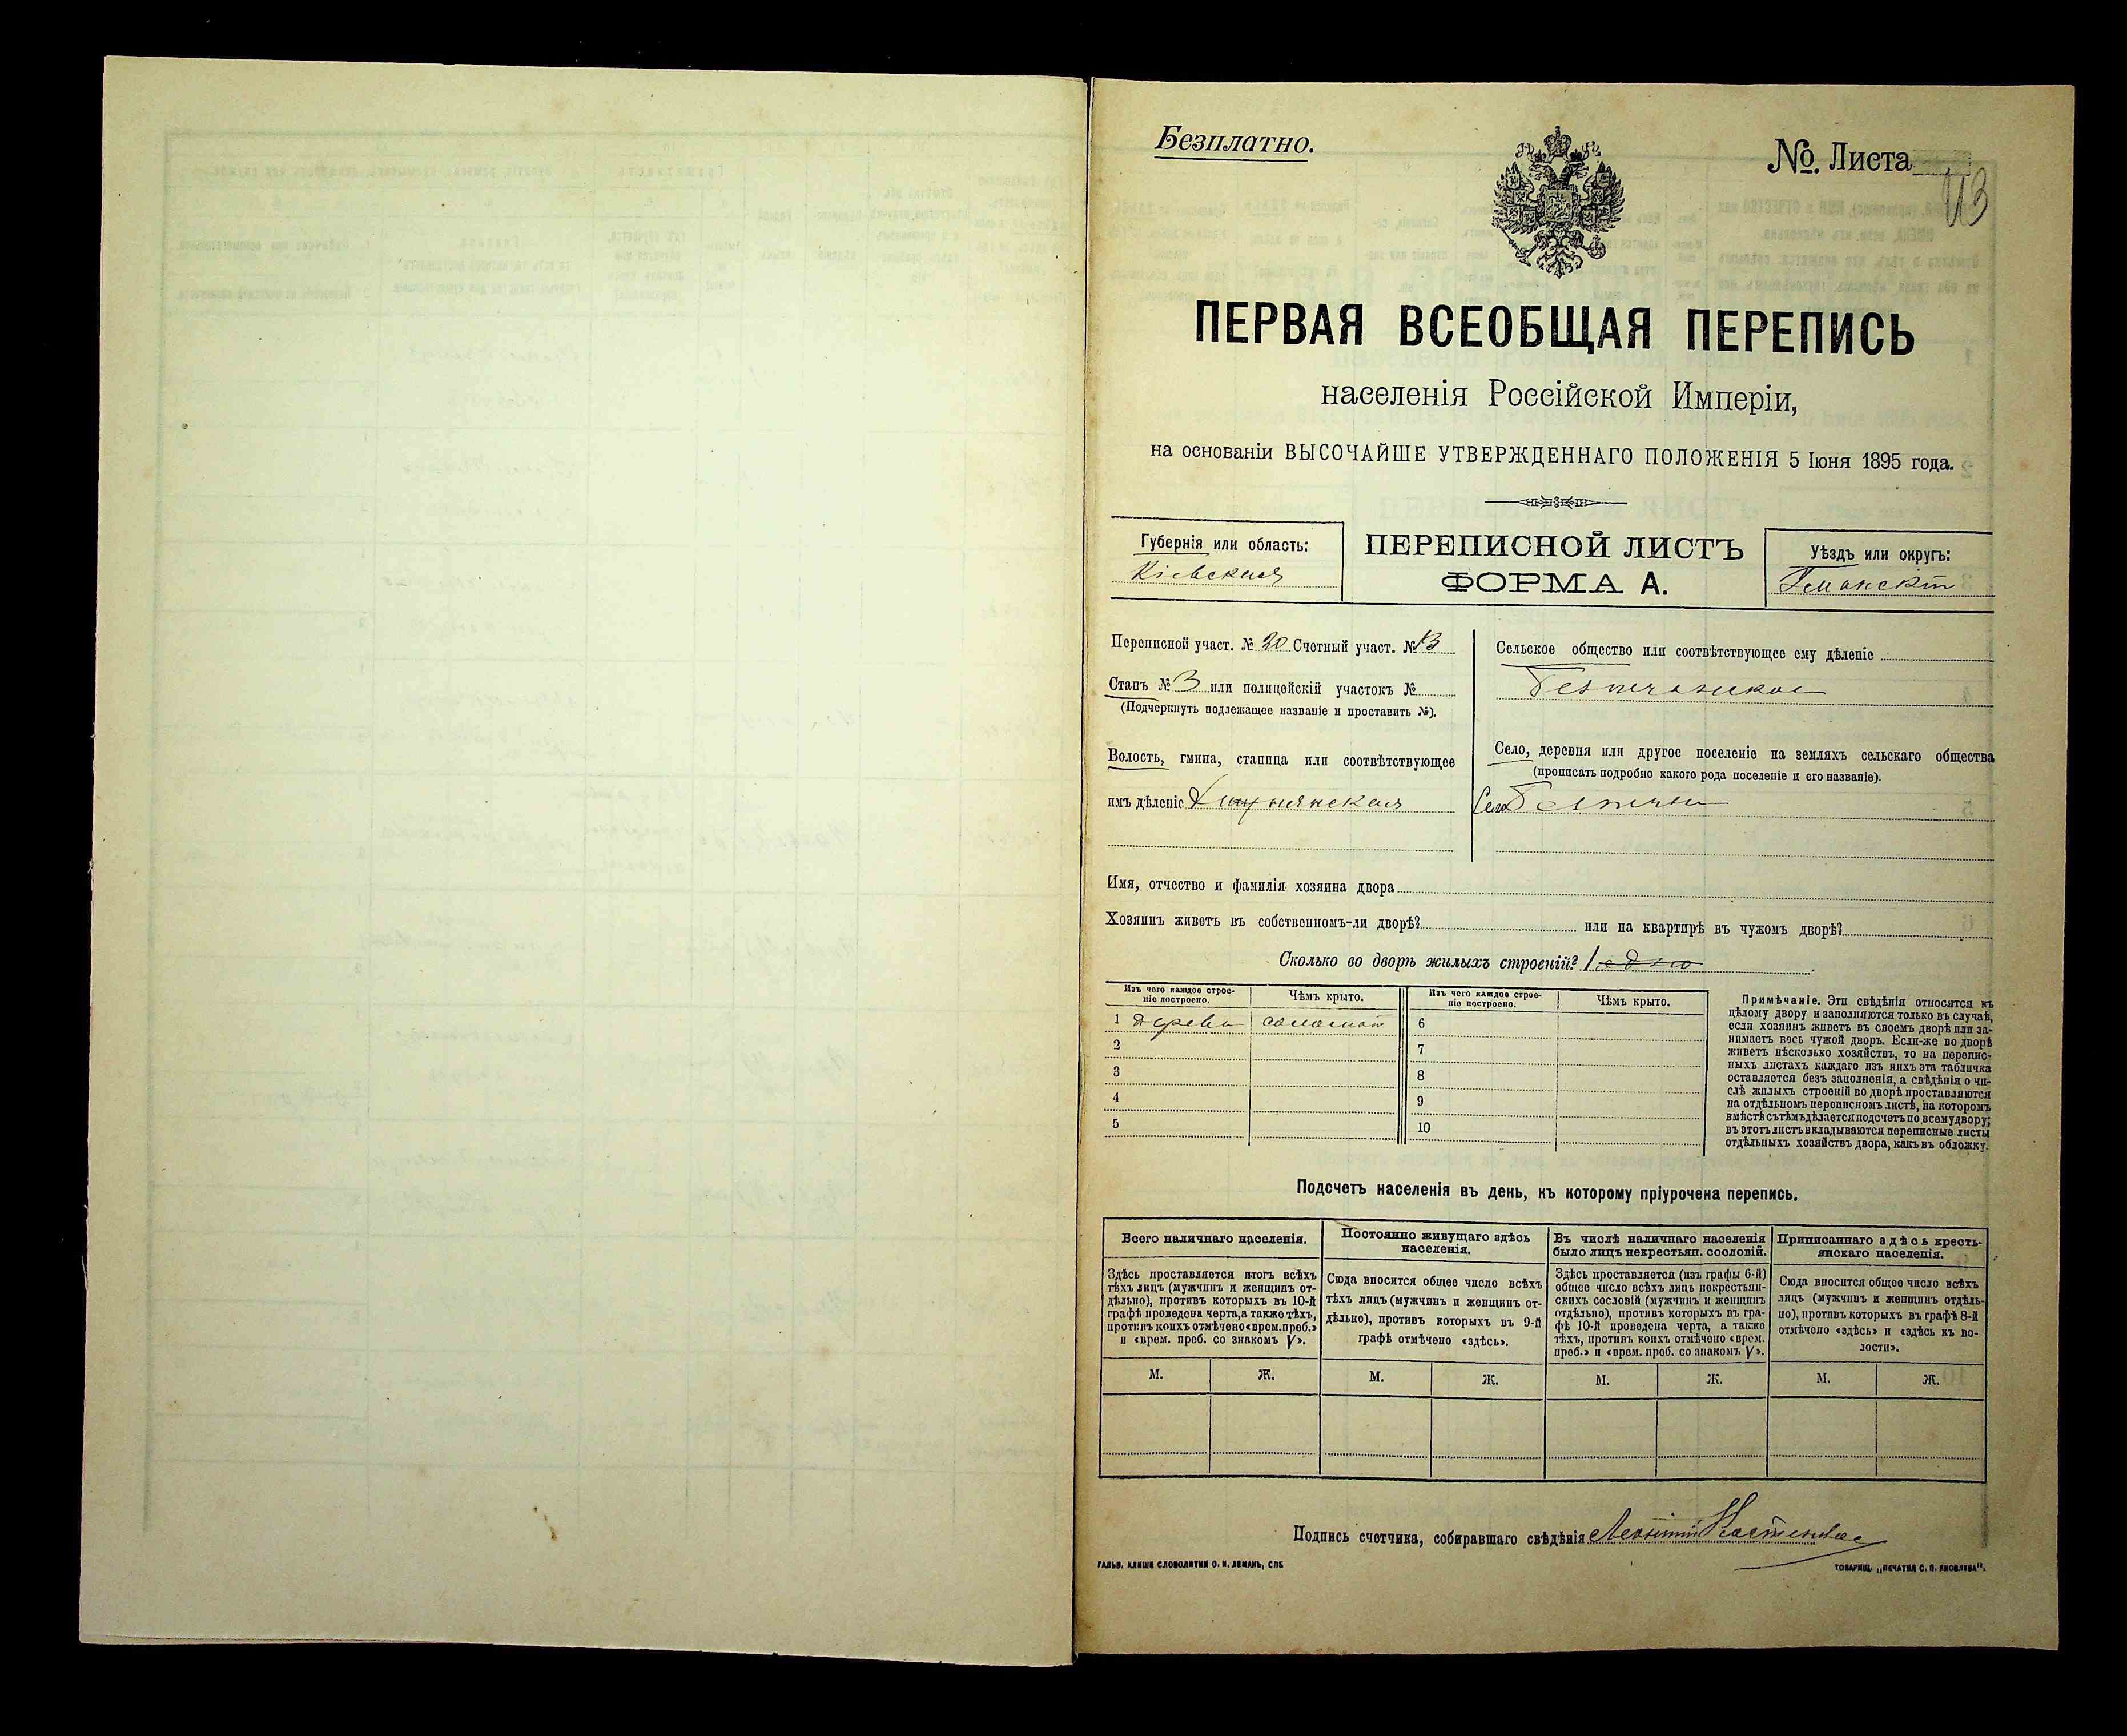 Безплатно.
№. Листа
113
ПЕРВАЯ ВСЕОБЩАЯ ПЕРЕПИСЬ
населенія Россійской Имперіи,
на основаніи ВЫСОЧАЙШЕ УТВЕРЖДЕННАГО ПОЛОЖЕНІЯ 5 Іюня 1895 года.
Губернія или область:
Кіевская
ПЕРЕПИСНОЙ ЛИСТЪ
ФОРМА А.
Уѣздъ или округъ:
Уманскій
Переписной участ. № 20 Счетный участ. №
Станъ № 3 или полицейскій участокъ №
(Подчеркнуть подлежащее названіе и проставить №).
Волость, гмина, станица или соотвѣтствующее
имъ дѣленіе
Сельское общество или соотвѣтствующее ему дѣленіе
Село, деревня или другое поселеніе на земляхъ сельскаго общества
(прописать подробно какого рода поселеніе и его названіе).
Село
Имя, отчество и фамилія хозяина двора
Хозяинъ живетъ въ собственномъ-ли дворѣ? или на квартирѣ въ чужомъ дворѣ?
Сколько во дворѣ жилыхъ строеній? 1 одно
Изъ чего каждое строе-
ніе построено.
Чѣмъ крыто.
Изъ чего каждое строе-
ніе построено.
Чѣмъ крыто.
1 дерева соломой 6
2 7
3 8
4 9
5 10
Примѣчаніе. Эти свѣдѣнія относятся къ
цѣлому двору и заполняются только въ случаѣ,
если хозяинъ живетъ въ своемъ дворѣ или за-
нимаетъ весь чужой дворъ. Если-же во дворѣ
живетъ нѣсколько хозяйствъ, то на перепис-
ныхъ листахъ каждаго изъ нихъ эта табличка
оставляется безъ заполненія, а свѣдѣнія о чи-
слѣ жилыхъ строеній во дворѣ проставляются
на отдѣльномъ переписномъ листѣ, на которомъ
вмѣстѣ съ тѣмъ дѣлается подсчетъ по всему двору;
въ этотъ листъ вкладываются переписные листы
отдѣльныхъ хозяйствъ двора, какъ въ обложку.
Подсчетъ населенія въ день, къ которому пріурочена перепись.
Всего наличнаго населенія.
Здѣсь проставляется итогъ всѣхъ
тѣхъ лицъ (мужчинъ и женщинъ от-
дѣльно), противъ которыхъ въ 10-й
графѣ проведена черта, а также тѣхъ,
противъ коихъ отмѣчено «врем. преб.»
и «врем. преб. со знакомъ V».
Постоянно живущаго здѣсь
населенія.
Сюда вносится общее число всѣхъ
тѣхъ лицъ (мужчинъ и женщинъ от-
дѣльно), противъ которыхъ въ 9-й
графѣ отмѣчено «здѣсь».
Въ числѣ наличнаго населенія
было лицъ некрестьян. сословій.
Здѣсь проставляется (изъ графы 6-й)
общее число всѣхъ лицъ некрестьян-
скихъ сословій (мужчинъ и женщинъ
отдѣльно), противъ которыхъ въ гра-
фѣ 10-й проведена черта, а также
тѣхъ, противъ коихъ отмѣчено «врем.
преб.» и «врем. преб. со знакомъ V».
Приписаннаго здѣсь кресть-
янскаго населенія.
Сюда вносится общее число всѣхъ
лицъ (мужчинъ и женщинъ отдѣль-
но), противъ которыхъ въ графѣ 8-й
отмѣчено «здѣсь» и «здѣсь къ во-
лости».
М. Ж. М. Ж. М. Ж. М. Ж.
Подпись счетчика, собиравшаго свѣдѣнія
ГАЛЬВ. КЛИШЕ СЛОВОЛИТНИ О. И. ЛЕМАНЪ, СПБ
ТОВАРИЩ. „ПЕЧАТНЯ С. П. ЯКОВЛЕВА“.